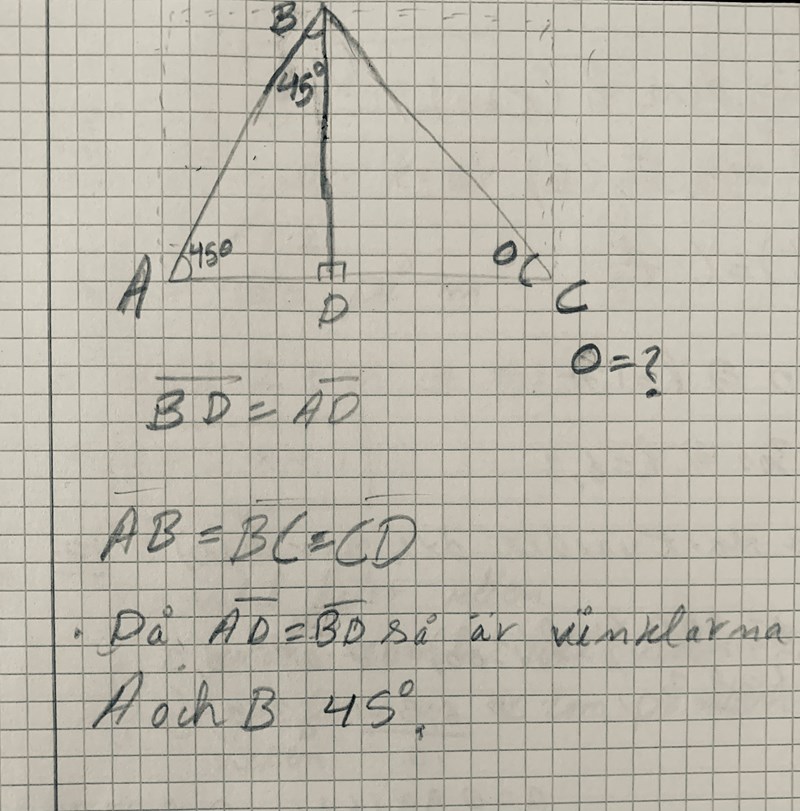 B
45°
45°
A
D
O
C
O=?
BD = AD
AB = BC = CD
. Då AD = BD så är vinklarna
A och B 45°.